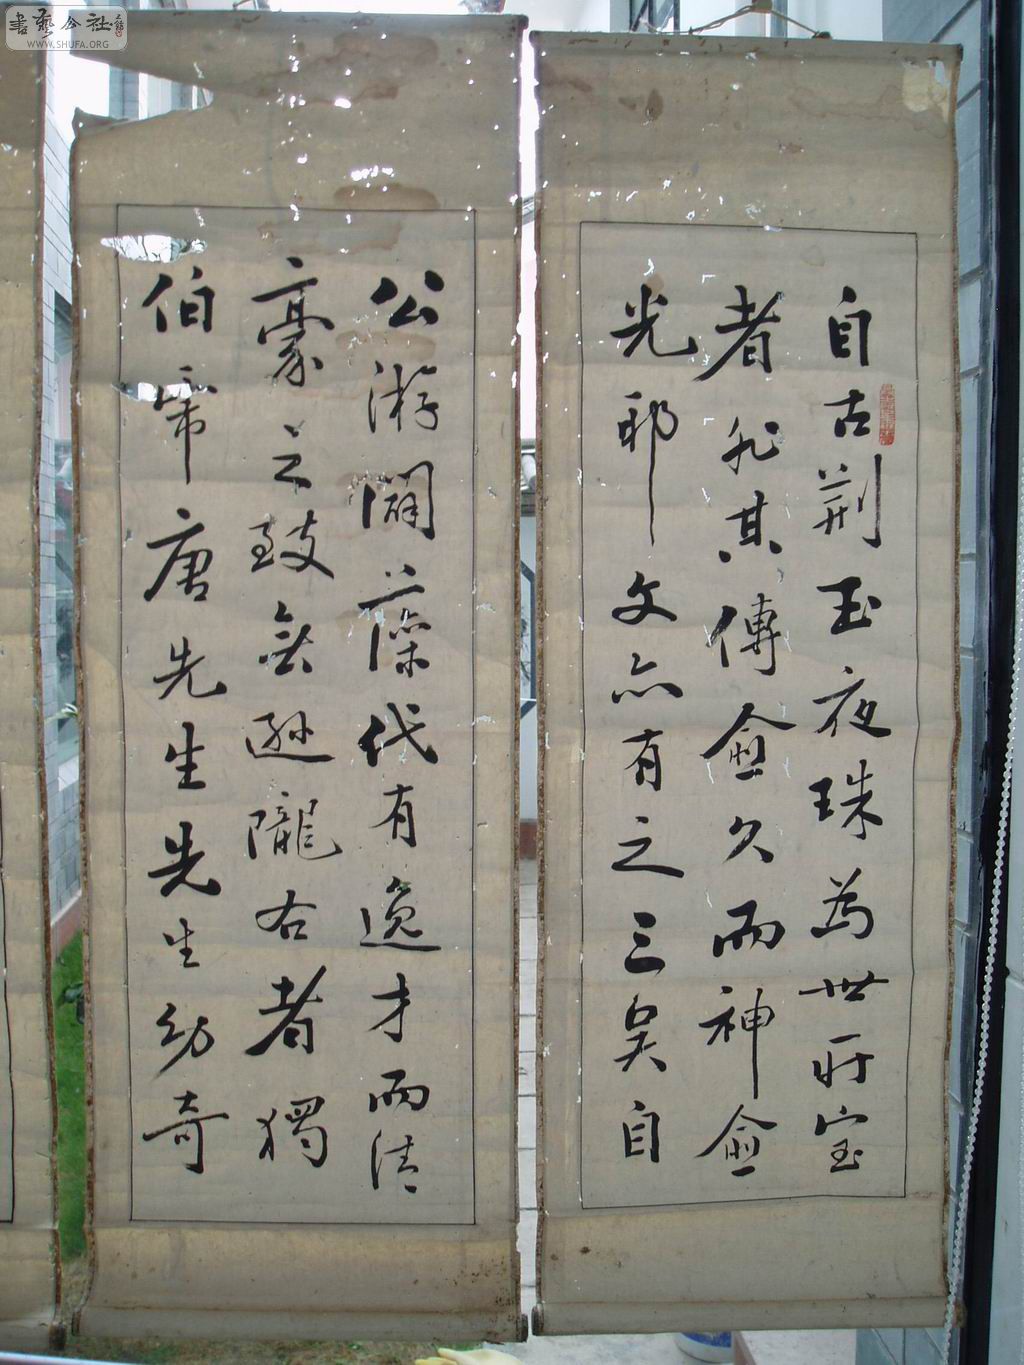 書藝公社
WWW.SHUFA.ORG
自古荆玉夜珠為世所宝
者非其傳愈久而神愈
光耶文亦有之三吴自
公游闢藻代有逸才而清
豪之致無遜隴右者獨
伯虎唐先生先生幼奇